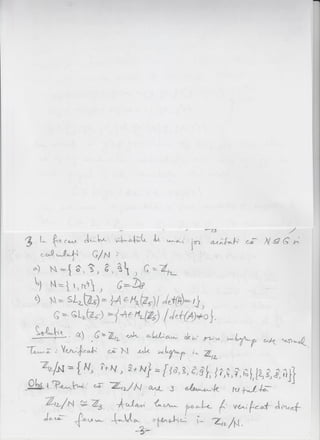 3 În fiecare dintre situațiile de mai jos arătați că N ⊴ G și
calculați G/N :
a) N = { 0̂, 3̂, 6̂, 9̂ } , G = ℤ₁₂
b) N = { 1, r² } , G = D₈
c) N = SL₂(ℤ₅) = { A ∈ M₂(ℤ₅) | det(A) = 1 },
G = GL₂(ℤ₅) = { A ∈ M₂(ℤ₅) | det(A) ≠ 0 }.
Soluție. a) G = ℤ₁₂ este abelian deci orice subgrup este normal
Temă : Verificați că N este subgrup în ℤ₁₂
ℤ₁₂/N = { N, 1̂+N, 2̂+N } = { {0̂,3̂,6̂,9̂}, {1̂,4̂,7̂,10̂}, {2̂,5̂,8̂,11̂} }
Obs : Pentru că ℤ₁₂/N are 3 elemente rezultă
ℤ₁₂/N ≅ ℤ₃. Același lucru poate fi verificat direct
dacă facem tabla operației în ℤ₁₂/N.
-3-